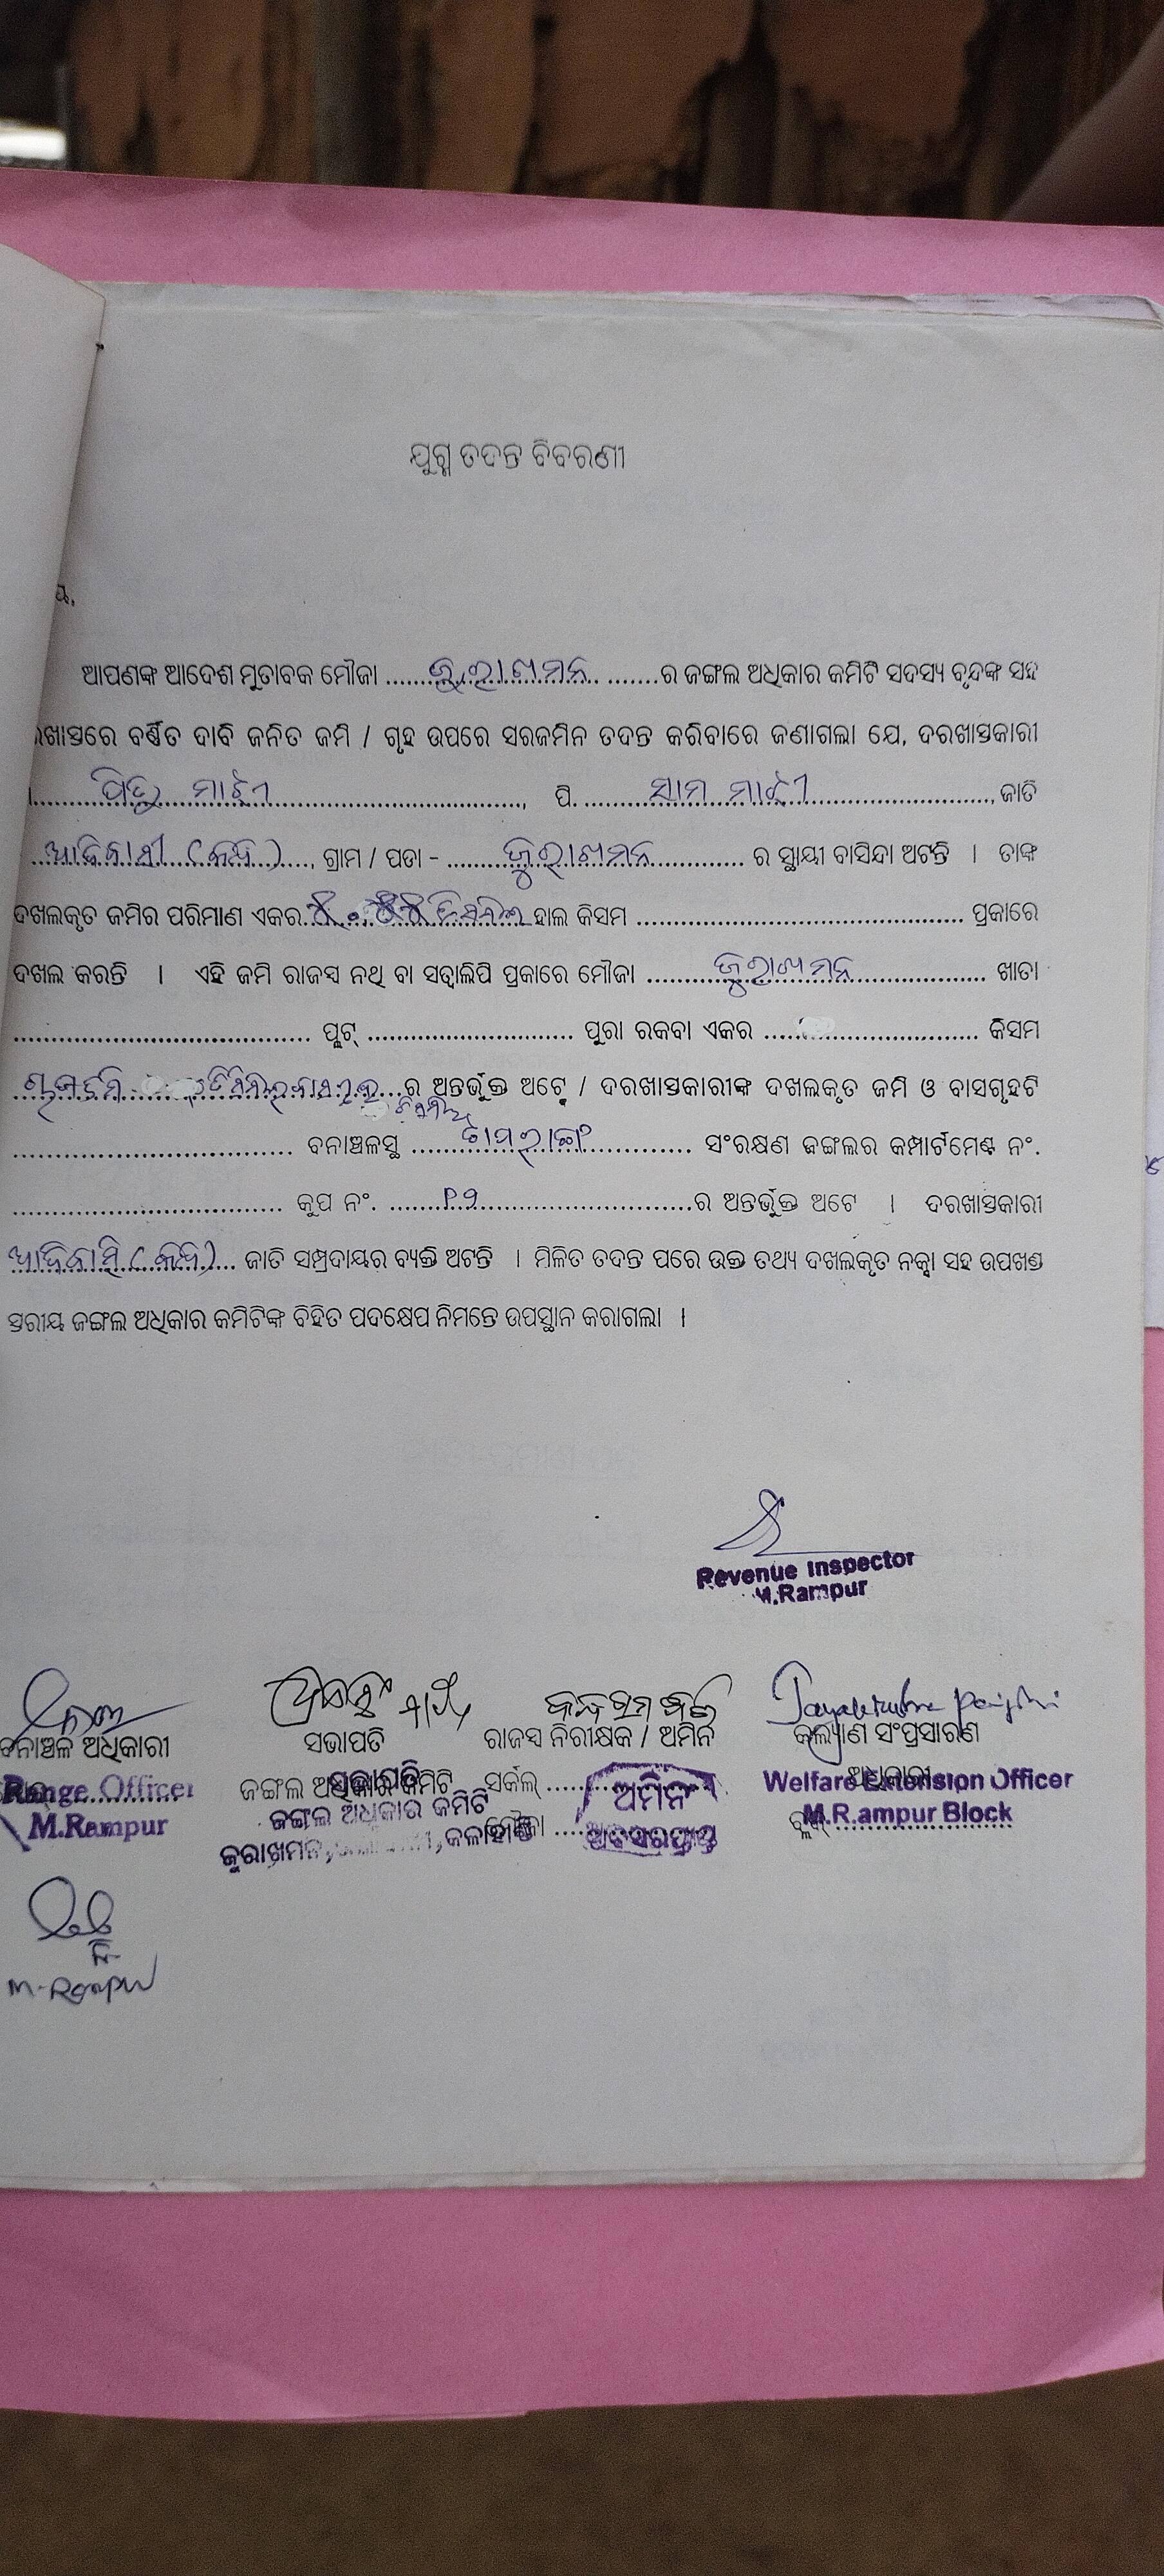 ଯୁଗ୍ମ ତଦନ୍ତ ବିବରଣୀ
ୟ,
ଆପଣଙ୍କ ଆଦେଶ ମୁତାବକ ମୌଜା ......ଜୁରାଖମନ...... ର ଜଙ୍ଗଲ ଅଧିକାର କମିଟି ସଦସ୍ୟ ବୃନ୍ଦଙ୍କ ସହ
ରଖାସ୍ତରେ ବର୍ଣ୍ଣିତ ଦାବି ଜନିତ ଜମି / ଗୃହ ଉପରେ ସରଜମିନ ତଦନ୍ତ କରିବାରେ ଜଣାଗଲା ଯେ, ଦରଖାସ୍ତକାରୀ
ମାଝୀ ......, ପି. ...... ସାମ ମାଝୀ ......, ଜାତି
ଆଦିବାସୀ (କନ୍ଧ) ......, ଗ୍ରାମ / ପଡା - ...... ଜୁରାଖମନ ...... ର ସ୍ଥାୟୀ ବାସିନ୍ଦା ଅଟନ୍ତି । ତାଙ୍କ
ଦଖଲକୃତ ଜମିର ପରିମାଣ ଏକର...... ହାଲ କିସମ ...... ପ୍ରକାରେ
ଦଖଲ କରନ୍ତି । ଏହି ଜମି ରାଜସ୍ୱ ନଥି ବା ସତ୍ୱାଲିପି ପ୍ରକାରେ ମୌଜା ...... ଜୁରାଖମନ ...... ଖାତା
...... ପ୍ଲଟ୍ ...... ପୁରା ରକବା ଏକର ...... କିସମ
...... ର ଅନ୍ତର୍ଭୁକ୍ତ ଅଟେ / ଦରଖାସ୍ତକାରୀଙ୍କ ଦଖଲକୃତ ଜମି ଓ ବାସଗୃହଟି
...... ବନାଞ୍ଚଳସ୍ଥ ...... ସଂରକ୍ଷଣ ଜଙ୍ଗଲର କମ୍ପାର୍ଟମେଣ୍ଟ ନଂ.
...... କୁପ ନଂ. ...... ର ଅନ୍ତର୍ଭୁକ୍ତ ଅଟେ । ଦରଖାସ୍ତକାରୀ
ଆଦିବାସି (କନ୍ଧ)...... ଜାତି ସମ୍ପ୍ରଦାୟର ବ୍ୟକ୍ତି ଅଟନ୍ତି । ମିଳିତ ତଦନ୍ତ ପରେ ଉକ୍ତ ତଥ୍ୟ ଦଖଲକୃତ ନକ୍ସା ସହ ଉପଖଣ୍ଡ
ସ୍ତରୀୟ ଜଙ୍ଗଲ ଅଧିକାର କମିଟିଙ୍କ ବିହିତ ପଦକ୍ଷେପ ନିମନ୍ତେ ଉପସ୍ଥାନ କରାଗଲା ।
Revenue Inspector
M.Rampur
ବନାଞ୍ଚଳ ଅଧିକାରୀ ସଭାପତି ରାଜସ୍ୱ ନିରୀକ୍ଷକ / ଅମିନ କଲ୍ୟାଣ ସଂପ୍ରସାରଣ
ଅଧିକାରୀ
Range Officer ଜଙ୍ଗଲ ଅଧିକାର କମିଟି ସଭାପତି ସର୍କଲ୍ ...... ଅମିନ Welfare Extension Officer
M.Rampur ଜଙ୍ଗଲ ଅଧିକାର କମିଟି ମୌଜା ...... ଅବସରପ୍ରାପ୍ତ ବ୍ଲକ୍ ...... M.Rampur Block
ଜୁରାଖମନ, କଳାହାଣ୍ଡି
M-Rampur